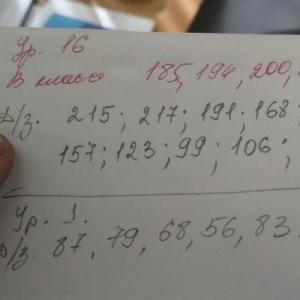 Ур. 16
В классе 185, 194, 200,
Д/з. 215; 217; 191; 168
157; 123; 99; 106;
Ур. 1.
Д/з. 87, 79, 68, 56, 83